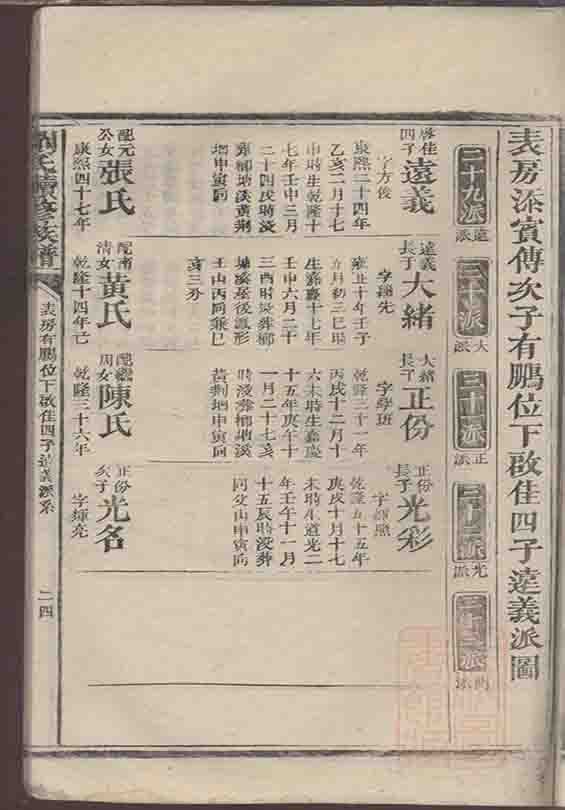 表房添賓傳次子有鵬位下啟佳四子遠義派圖
二十九派
遠派
三十派
大派
三十一派
正派
三十二派
光派
三十三派
派
啟佳
四子
遠義
字方後
康熙三十四年
乙亥二月十七
申時生乾隆十
七年壬申三月
二十四戌時沒
葬鄉塘溪黃荆
堋申寅向
配元
公女
張氏
康熙四十七年
遠義
長子
大緒
字纘先
雍正十年壬子
五月初三巳時
生嘉慶十七年
壬申六月二十
三酉時沒葬鄉
塘溪屋後瓢形
壬山丙向兼巳
亥三分
配南
清女
黃氏
乾隆十四年己
大緒
長子
正份
字學班
乾隆三十一年
丙戌十二月十
六未時生嘉慶
十五年庚午十
一月二十七亥
時沒葬鄉塘溪
黃荆堋申寅向
配
周女
陳氏
乾隆三十六年
正份
長子
光彩
字輝照
乾隆五十五年
庚戌十月十七
未時生道光二
年壬午十一月
十五辰時沒葬
同父山申寅向
正份
次子
光名
字輝亮
劉氏續修族譜
表房有鵬位下啟佳四子遠義派系
二四